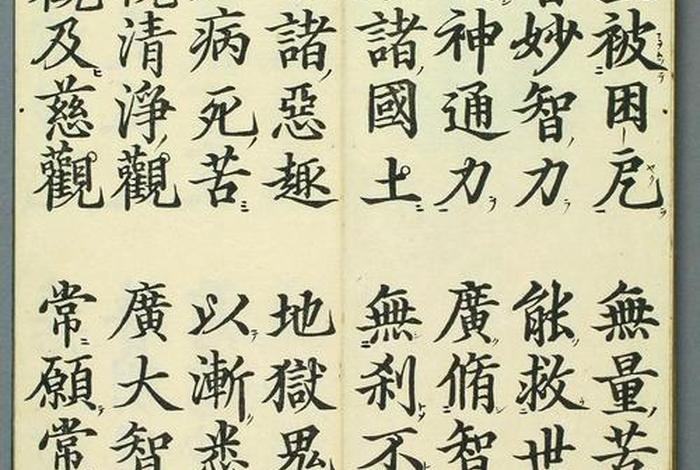 被困戹 無量苦
妙智力 能救世
神通力 廣脩智
諸國土 無刹不
諸惡趣 地獄鬼
病死苦 以漸悉
觀清淨觀 廣大智
觀及慈觀 常願常